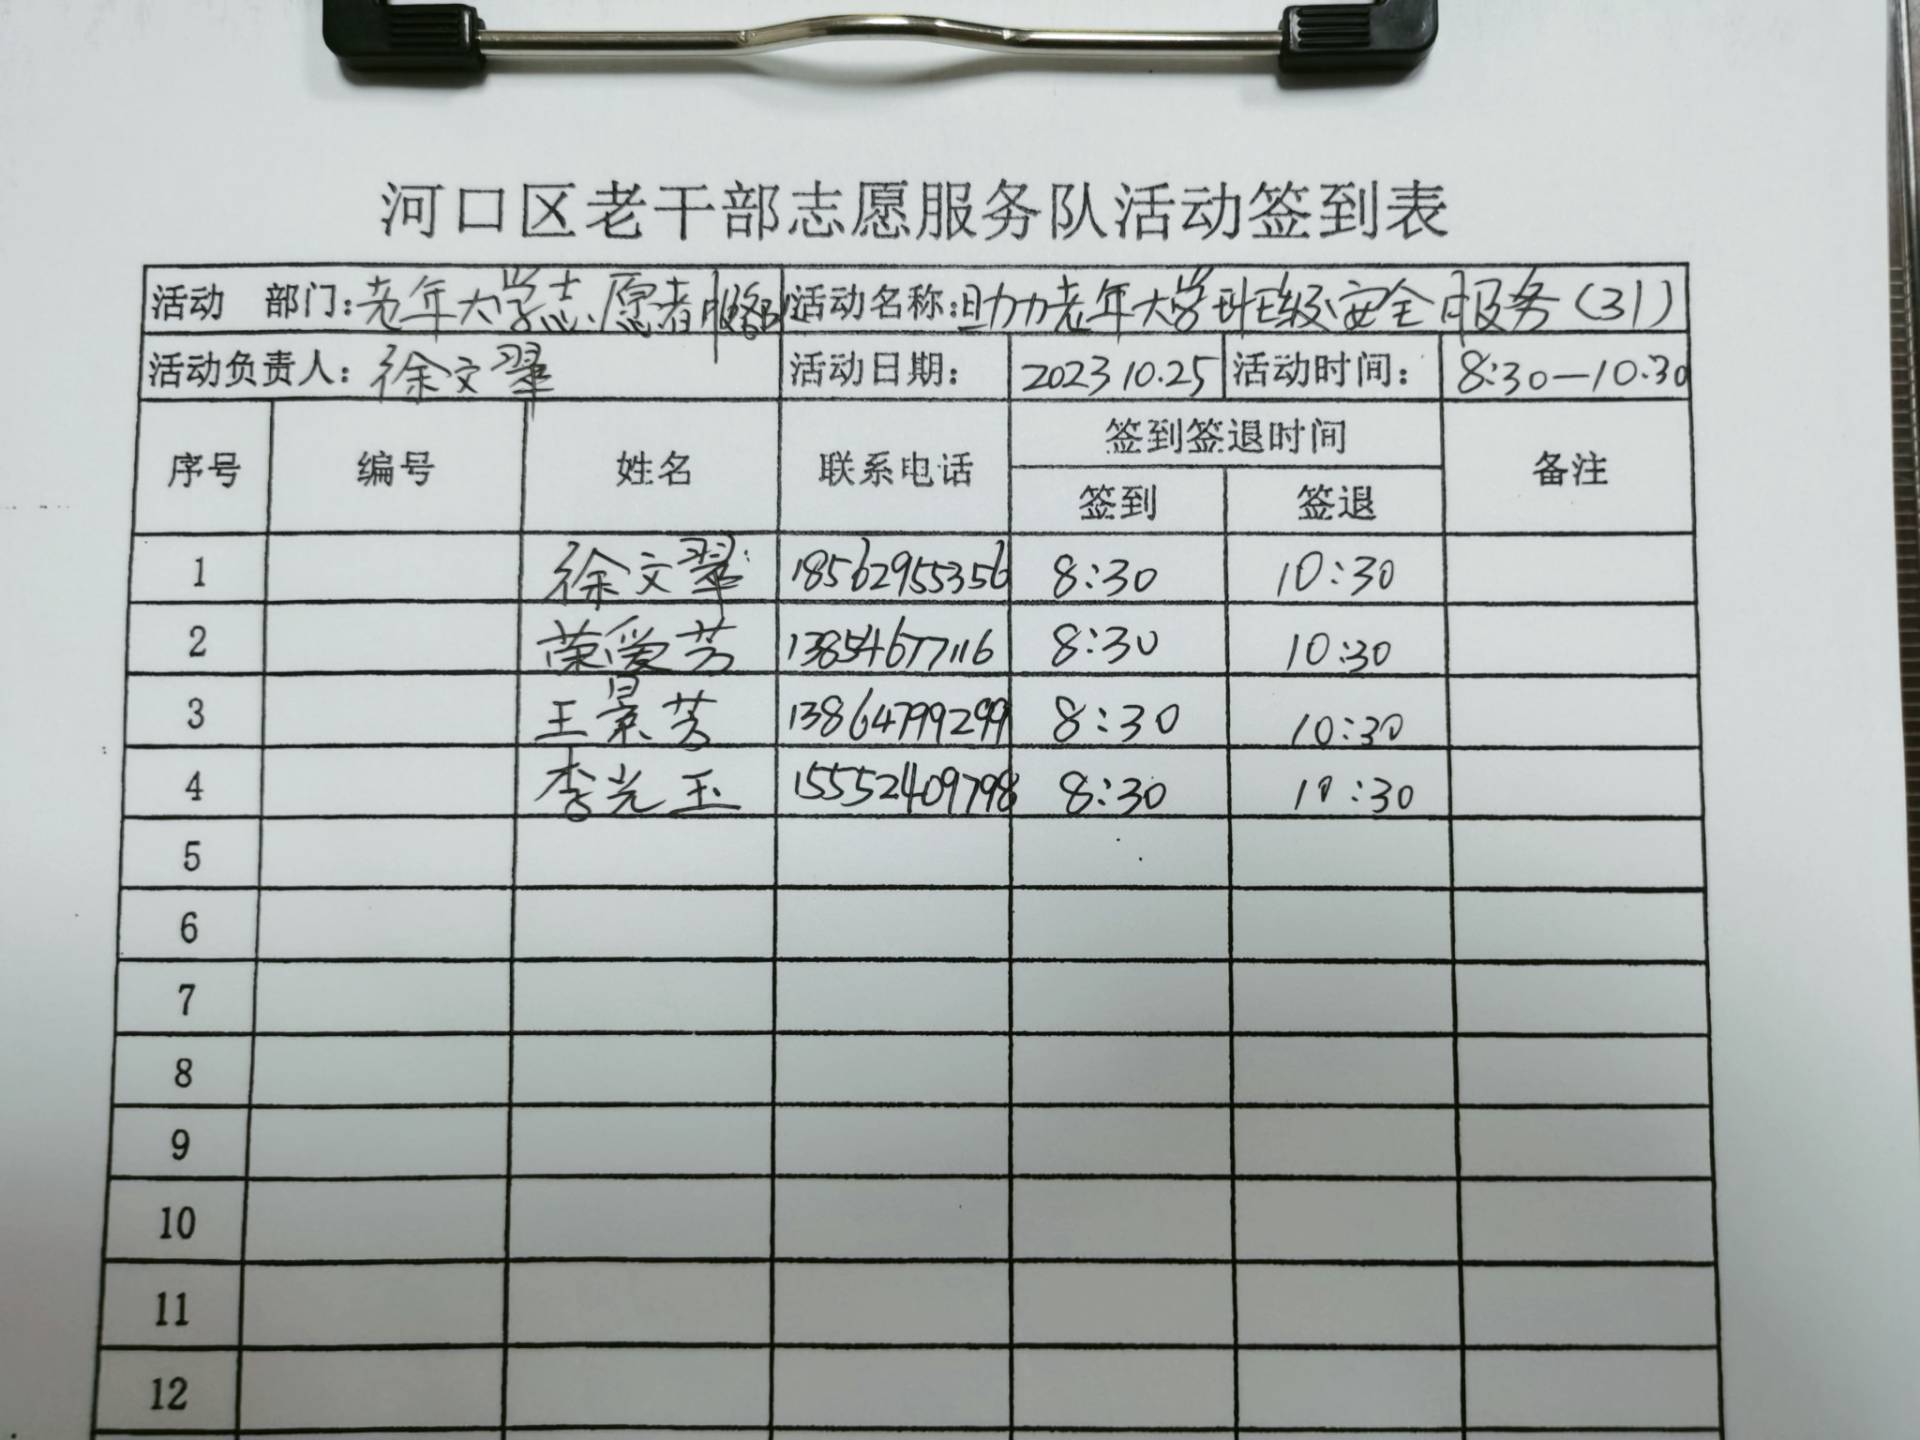 河口区老干部志愿服务队活动签到表
活动 部门：老年大学志愿者服务队 活动名称：助力老年大学班级安全服务（31）
活动负责人：徐文翠 活动日期： 2023 10.25 活动时间： 8:30—10:30
序号 编号 姓名 联系电话 签到签退时间 备注
签到 签退
1 徐文翠 18562955356 8:30 10:30
2 荣爱芳 13854677116 8:30 10:30
3 王景芳 13864799299 8:30 10:30
4 李光玉 15552409798 8:30 10:30
5
6
7
8
9
10
11
12